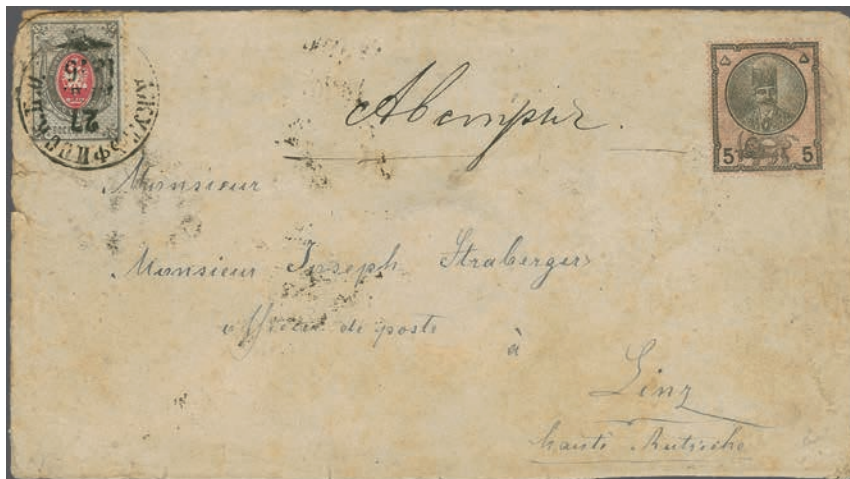 Австрия.
5 5
27
Monsieur
Monsieur Joseph Straberger
officier de poste
à
Linz
haute Autriche